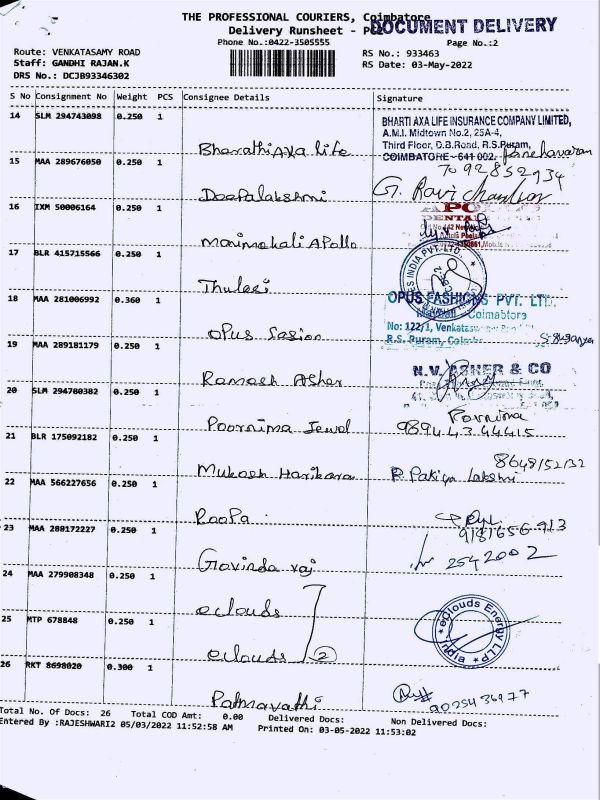 THE PROFESSIONAL COURIERS, Coimbatore
DOCUMENT DELIVERY
Delivery Runsheet -
Phone No.:0422-3505555
Page No.:2
Route: VENKATASAMY ROAD
RS No.: 933463
Staff: GANDHI RAJAN.K
RS Date: 03-May-2022
DRS No.: DCJB93346302
S No Consignment No Weight PCS Consignee Details Signature
14 SLM 294743098 0.250 1
BHARTI AXA LIFE INSURANCE COMPANY LIMITED,
A.M.I. Midtown No.2, 25A-4,
Third Floor, D.B.Road, R.S.Puram,
COIMBATORE-641 002.
Bharathi Axa Life
7092852934
15 MAA 289676050 0.250 1
Deepalakshmi
G. Ravichandran
16 IXM 50006164 0.250 1
DENTAL
Manimekali Apollo
17 BLR 415715566 0.250 1
INDIA PVT. LTD.
Thulasi
18 MAA 281006992 0.360 1
OPUS FASHIONS PVT. LTD.
Coimbatore
No: 122/1, Venkatas
R.S. Puram,
Opus Fasion
19 MAA 289181179 0.250 1
N.V. ASHER & CO
Ramesh Asher
20 SLM 294780382 0.250 1
Pornima
Poornima Jewel
9894434415
21 BLR 175092182 0.250 1
8648152132
Mukesh Harikara
R Pakiya lakshmi
22 MAA 566227656 0.250 1
Roopa
9181656913
23 MAA 288172227 0.250 1
2542002
Govinda raj
24 MAA 279908348 0.250 1
eclouds
eClouds Energy LLP
India
25 MTP 678848 0.250 1
eclouds 2
26 RKT 8698020 0.300 1
Patmavathi
9025436977
Total No. Of Docs: 26 Total COD Amt: 0.00 Delivered Docs: Non Delivered Docs:
Entered By :RAJESHWARI2 05/03/2022 11:52:58 AM Printed On: 03-05-2022 11:53:02